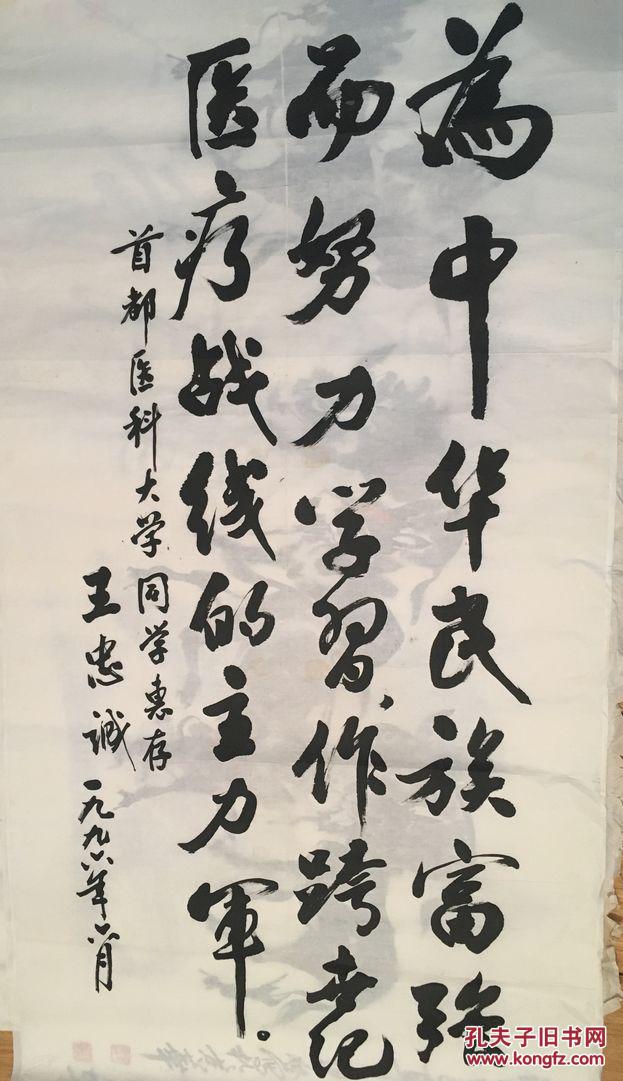 為中华民族富强
而努力学習,作跨世纪
医疗战线的主力軍。
首都医科大学同学惠存
王忠诚
一九九六年六月
孔夫子旧书网
www.kongfz.com